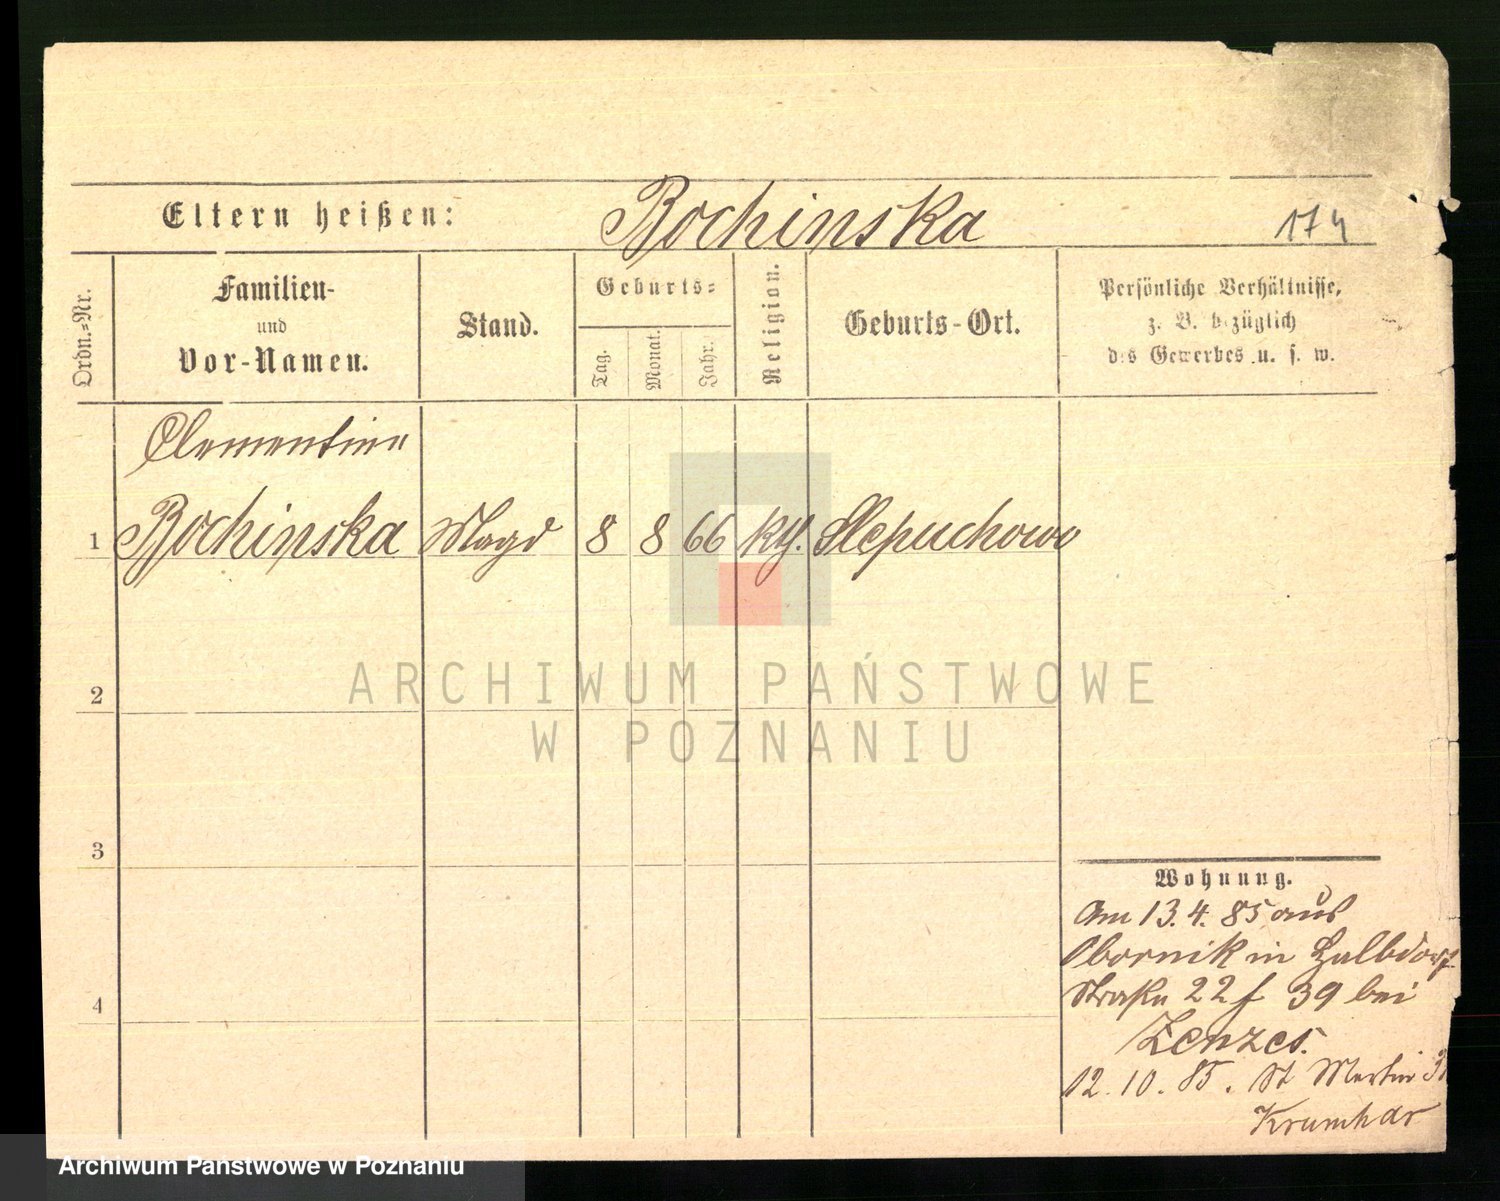 Eltern heißen: Bochinska 174
Ordn.=Nr.
Familien-
und
Vor-Namen.
Stand.
Geburts=
Tag.
Monat.
Jahr.
Religion.
Geburts-Ort.
Persönliche Verhältnisse,
z. B. bezüglich
des Gewerbes u. s. w.
Clementine
1 Bochinska Magd 8 8 66 kth. Slepuchowo
2
3
4
Wohnung.
Am 13.4.85 aus
Obornik in Halbdorf
Straße 22 f 39 bei
Zenzes.
12.10.85. St Martin
Krumhar
ARCHIWUM PAŃSTWOWE
W POZNANIU
Archiwum Państwowe w Poznaniu